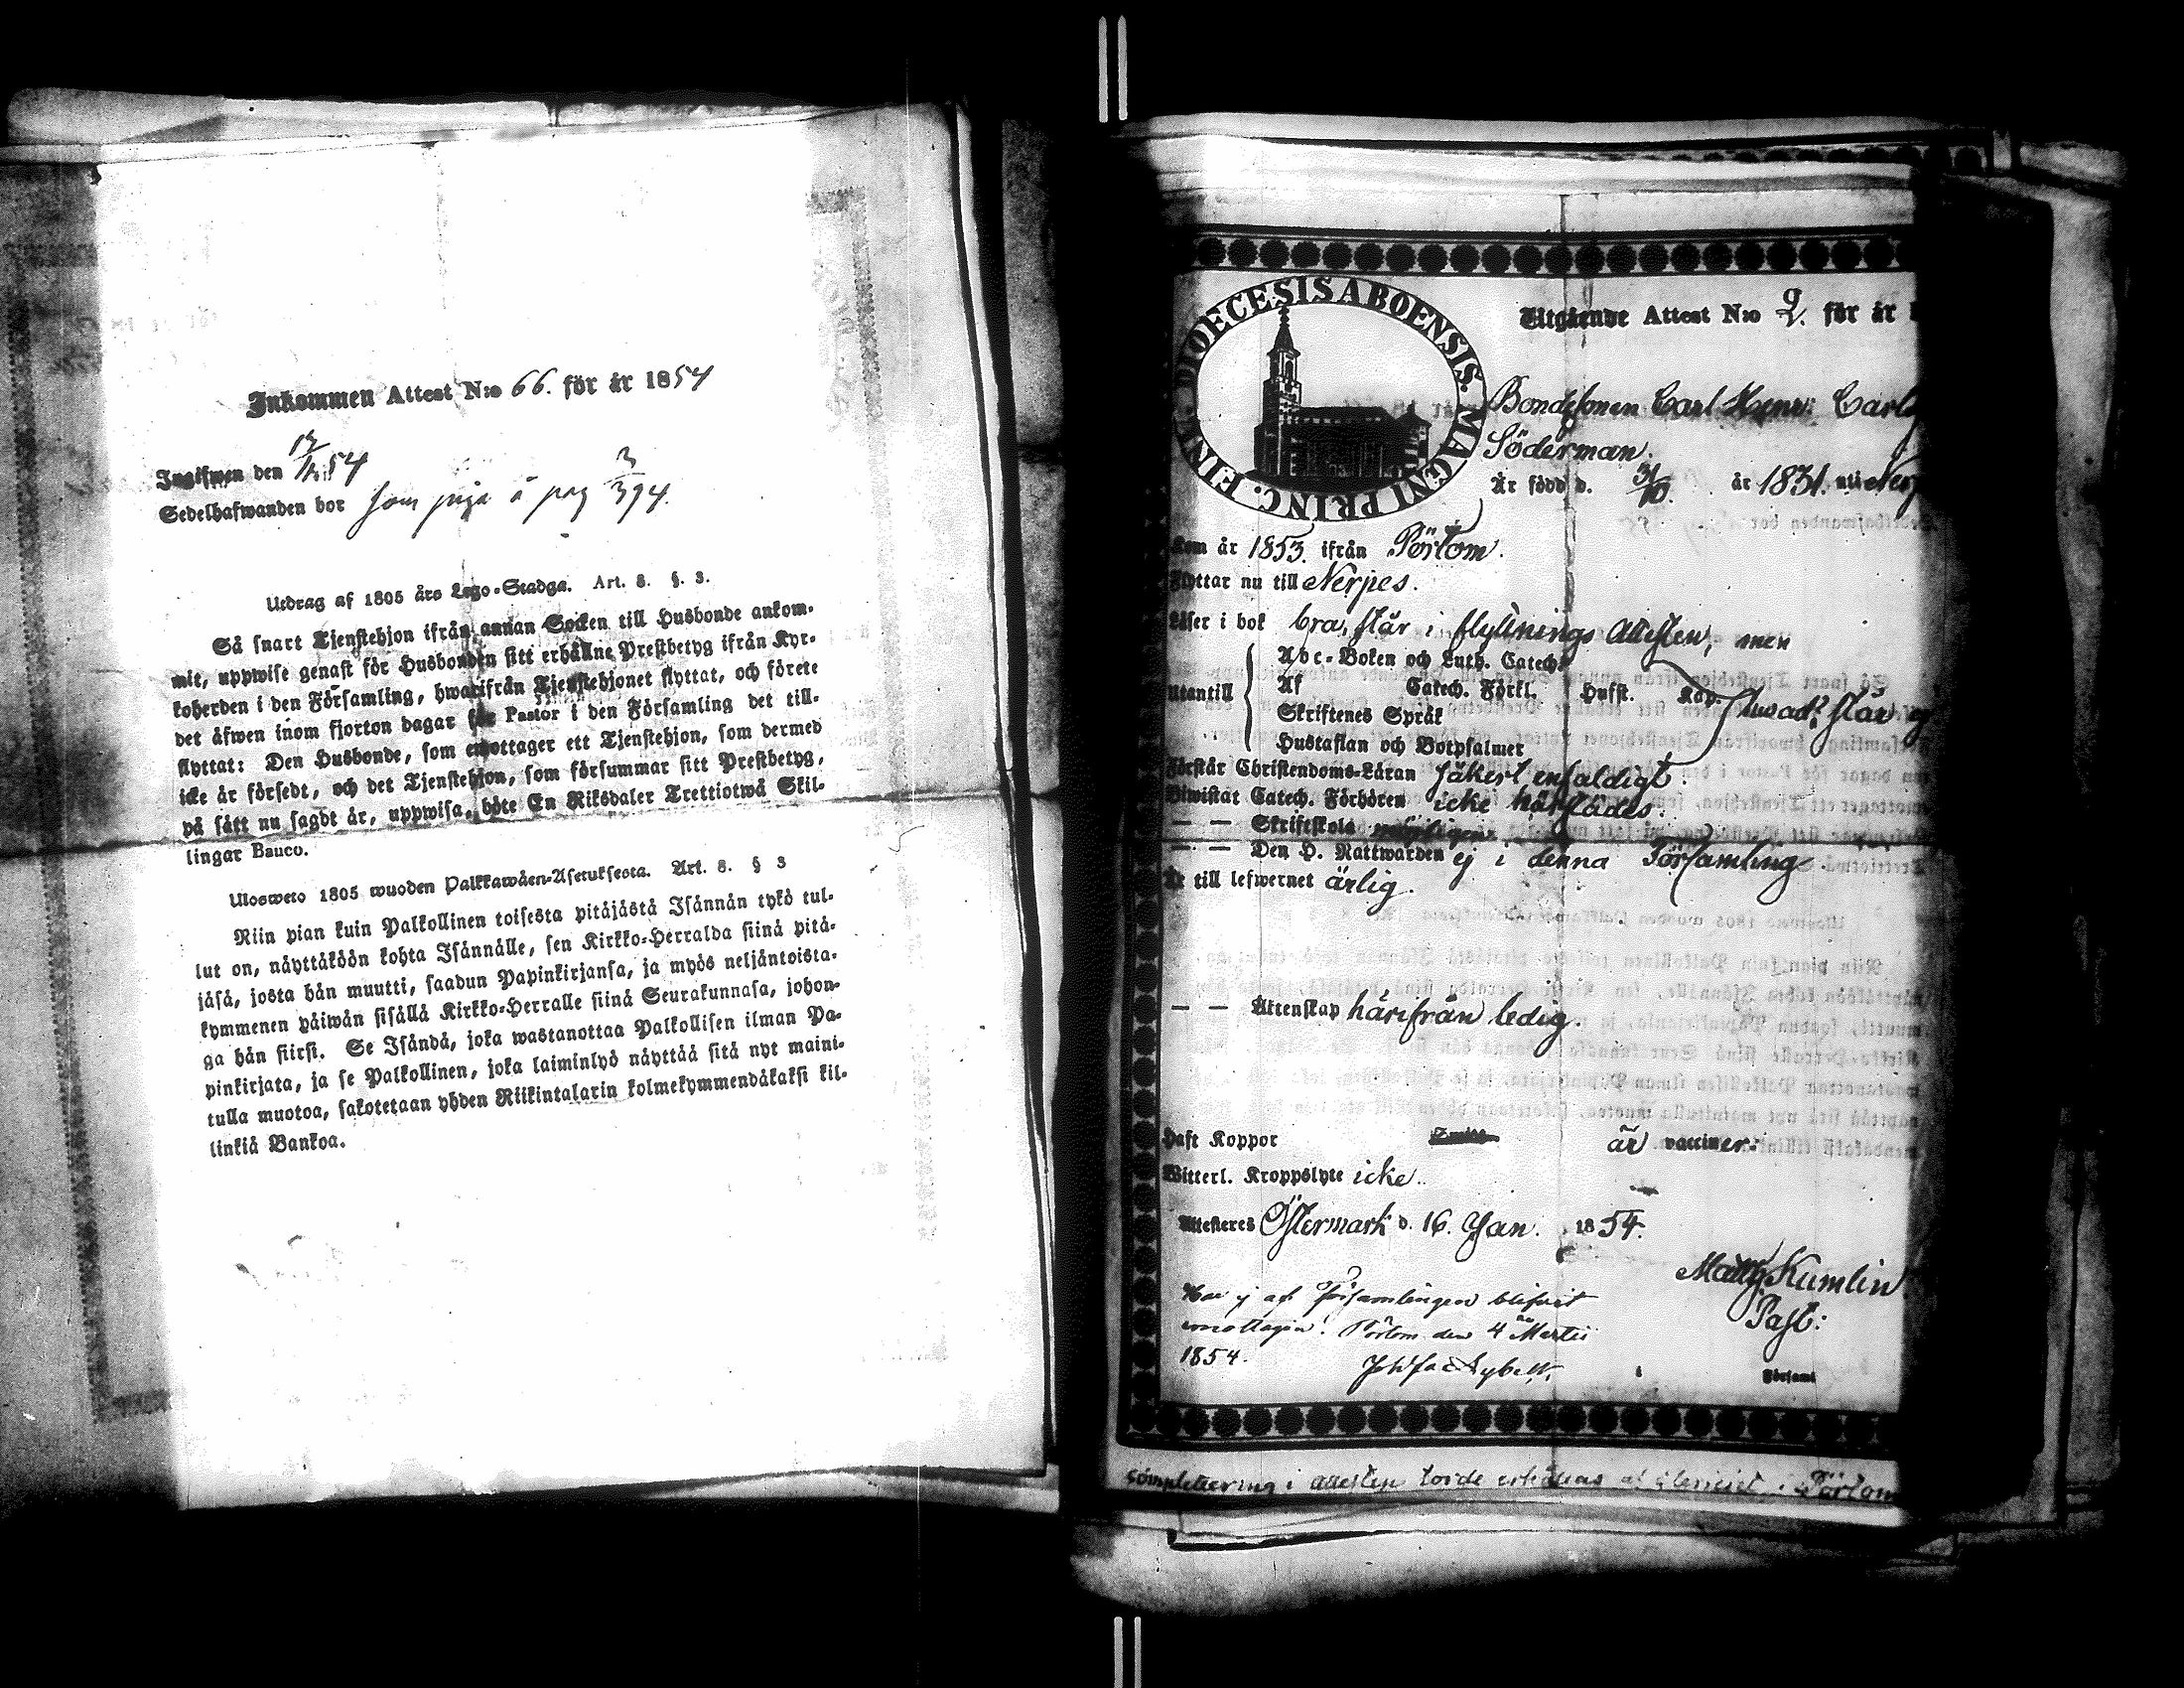 Inkommen Attest N:o 66. för år 1854
Ingifwen den 54
Sedelhafwanden bor som piga å pag 3/394.
Utdrag af 1805 års Lego-Stadga. Art. 8. §. 3.
Så snart Tjenstehjon ifrån annan Socken till Husbonde ankom-
mit, uppwise genast för Husbonden sitt erhållne Prestbetyg ifrån Kyr-
koherden i den Församling, hwarifrån Tjenstehjonet flyttat, och förete
det äfwen inom fjorton dagar för Pastor i den Församling det till-
flyttat: Den Husbonde, som emottager ett Tjenstehjon, som dermed
icke är försedt, och det Tjenstehjon, som försummar sitt Prestbetyg,
på sätt nu sagdt är, uppwisa, böte En Riksdaler Trettiotwå Skil-
lingar Banco.
Ulosweto 1805 wuoden Palkkawäen-Asetuksesta. Art. 8. § 3
Niin pian kuin Palkollinen toisesta pitäjästä Isännän tykö tul-
lut on, näyttäköön kohta Isännälle, sen Kirkko-Herralda siinä pitä-
jäsä, josta hän muutti, saadun Papinkirjansa, ja myös neljäntoista-
kymmenen päiwän sisällä Kirkko-Herralle siinä Seurakunnasa, johon-
ga hän siirsi. Se Isändä, joka wastanottaa Palkollisen ilman Pa-
pinkirjata, ja se Palkollinen, joka laiminlyö näyttää sitä nyt maini-
tulla muotoa, sakotetaan yhden Riikintalarin kolmekymmendäkaksi kil-
linkiä Bankoa.
DIOECESIS ABOENSIS. MAGNI PRINC. FINL.
Utgående Attest N:o 9. för år
Bondesonen Carl Henr: Carls
Söderman.
Är född d. 31/10. år 1831. uti
Kom år 1853. ifrån Pörtom.
Flyttar nu till Nerpes.
Läser i bok bra, står i flyttnings attesten, men
Utantill
Abc-Boken och Luth. Catech.
Af Catech. Förkl. Husst. Kap.
Skriftenes Språk
Hustaflan och Botpsalmer
Förstår Christendoms-Läran säkert enfaldigt
Biwistat Catech. Förhören icke härstädes.
— — Skriftskola
— — Den H. Nattwarden ej i denna Församling
Är till lefwernet ärlig.
— — Ättenskap härifrån ledig.
Haft Koppor är vaccinер:
Witterl. Kroppslyte icke.
Attesteres Östermark d. 16. Jan. 1854.
Matth. Kumlin
Past:
Församl
Har ej af Församlingen blifvit
emottagen. Pörtom den 4 Martii
1854.
complettering i attesten torde erhållas af i Pörtom